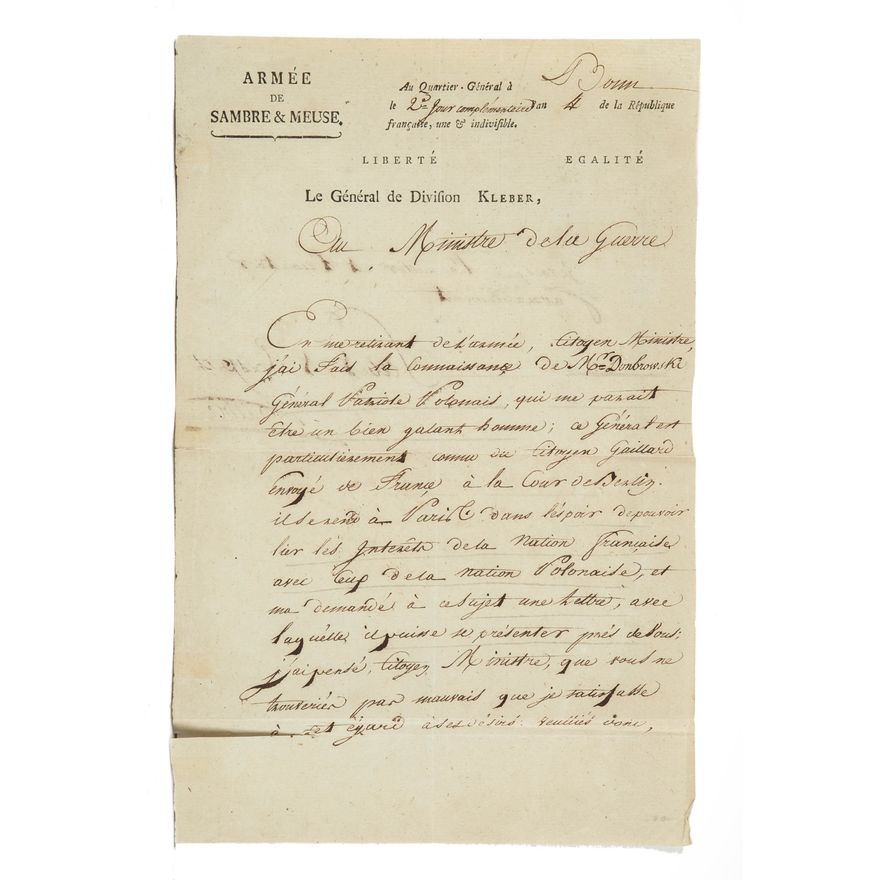 ARMÉE
DE
SAMBRE & MEUSE.
Au Quartier-Général à Bonn
le 2e Jour complémentaire an 4 de la République
françaiſe, une & indiviſible.
LIBERTÉ EGALITÉ
Le Général de Diviſion KLEBER,
Au Ministre de la Guerre
En me retirant de l'armée, Citoyen Ministre,
j'ai fais la Connaissance de Mr. Donbrowski
Général Patriote Polonais, qui me parait
être un bien galant homme; ce Général est
particulièrement connu du Citoyen Gaillard
envoyé de France à la Cour de Berlin.
il se rend à Paris dans l'éspoir de pouvoir
lier lés Interêts de la Nation française
avec Ceux de la nation Polonaise, et
ma demandé à ce sujet une lettre, avec
laquelle il puisse se présenter prés de Vous;
j'ai pensé, Citoyen Ministre, que vous ne
trouveriés pas mauvais que je satisfasse
à cet égard à ses désirs: veuillés donc,